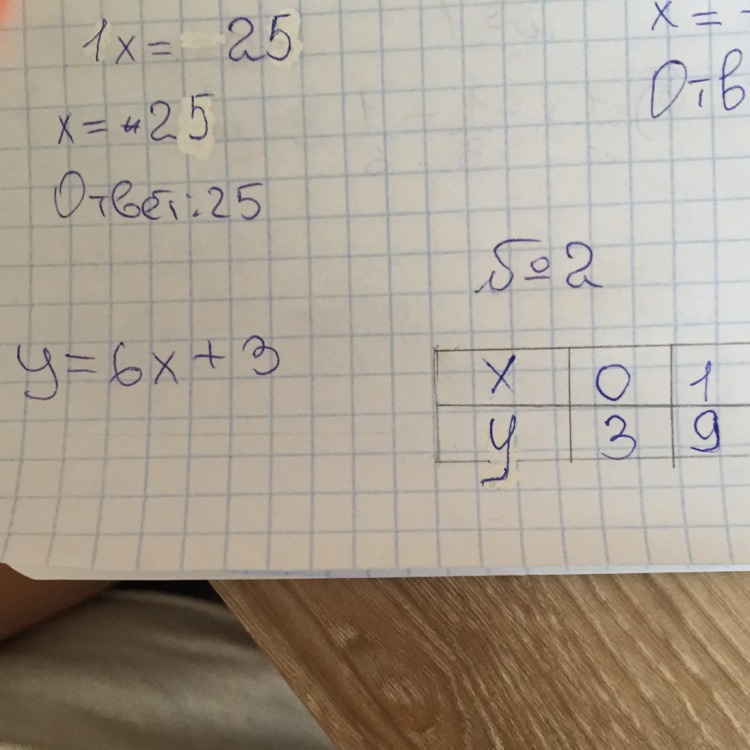 1x = 25
x = -25
Ответ: 25
x = -
Отв
№2
y = 6x + 3
x 0 1
y 3 9